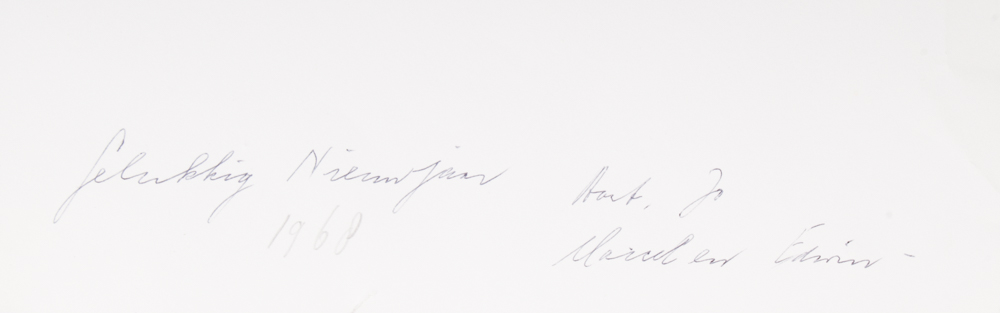 Gelukkig Nieuwjaar
1968
Aart. Jo
Marcel en Edwin -